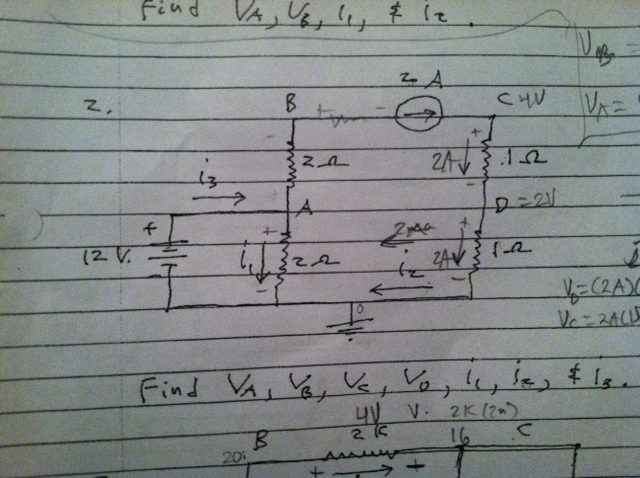 Find VA, VB, i1, & i2.
VAB =
2 A
2.
B
+ -
C 4V
VA =
-
+
2 Ω
2A
1 Ω
i3
-
A
D = 2V
+
+
+
2A
12 V.
i1
2 Ω
2A
1 Ω
-
i2
-
VD = (2A)(
0
VC = 2A(1
Find VA, VB, VC, VD, i1, i2, & i3.
4V V. 2K
B 2K 16 C
20
+ +